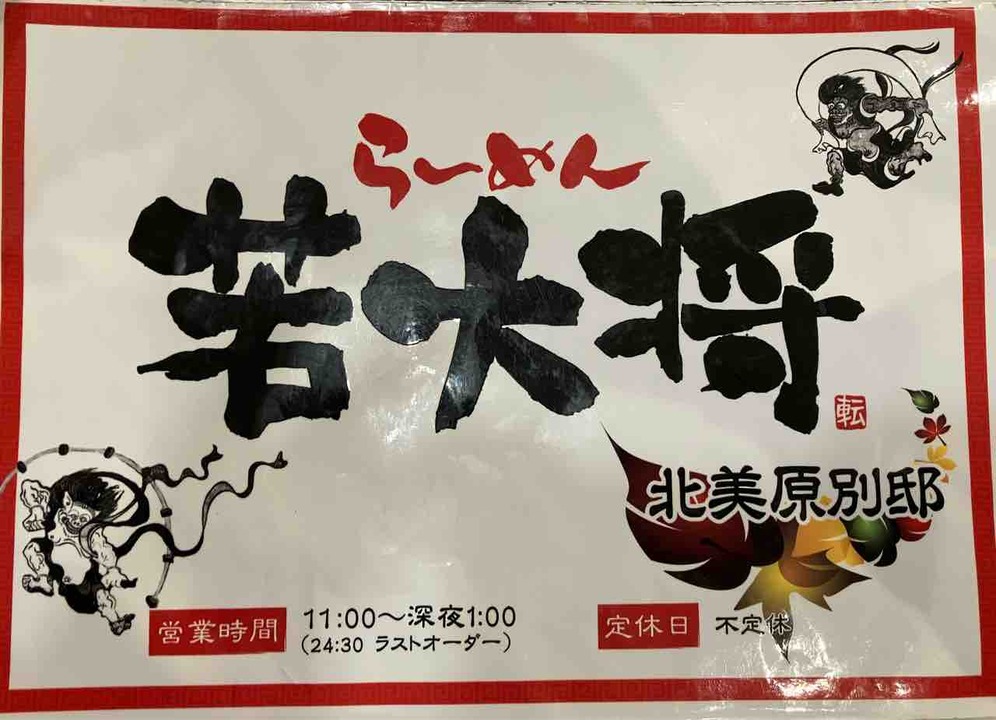 らーめん
若大将
転
北美原別邸
営業時間 11:00〜深夜1:00
(24:30 ラストオーダー)
定休日 不定休